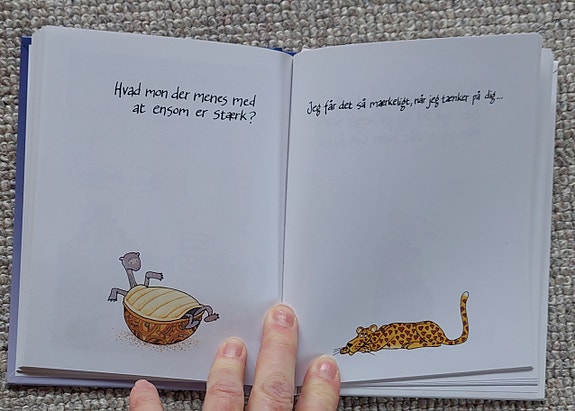 Hvad mon der menes med
at ensom er stærk?
Jeg får det så mærkeligt, når jeg tænker på dig...